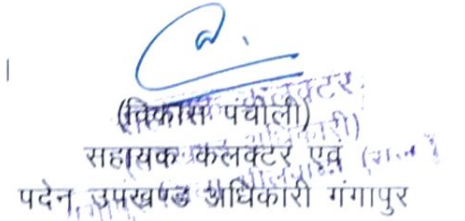 (विकास पंचोली)
सहायक कलक्टर एवं
पदेन उपखण्ड अधिकारी गंगापुर